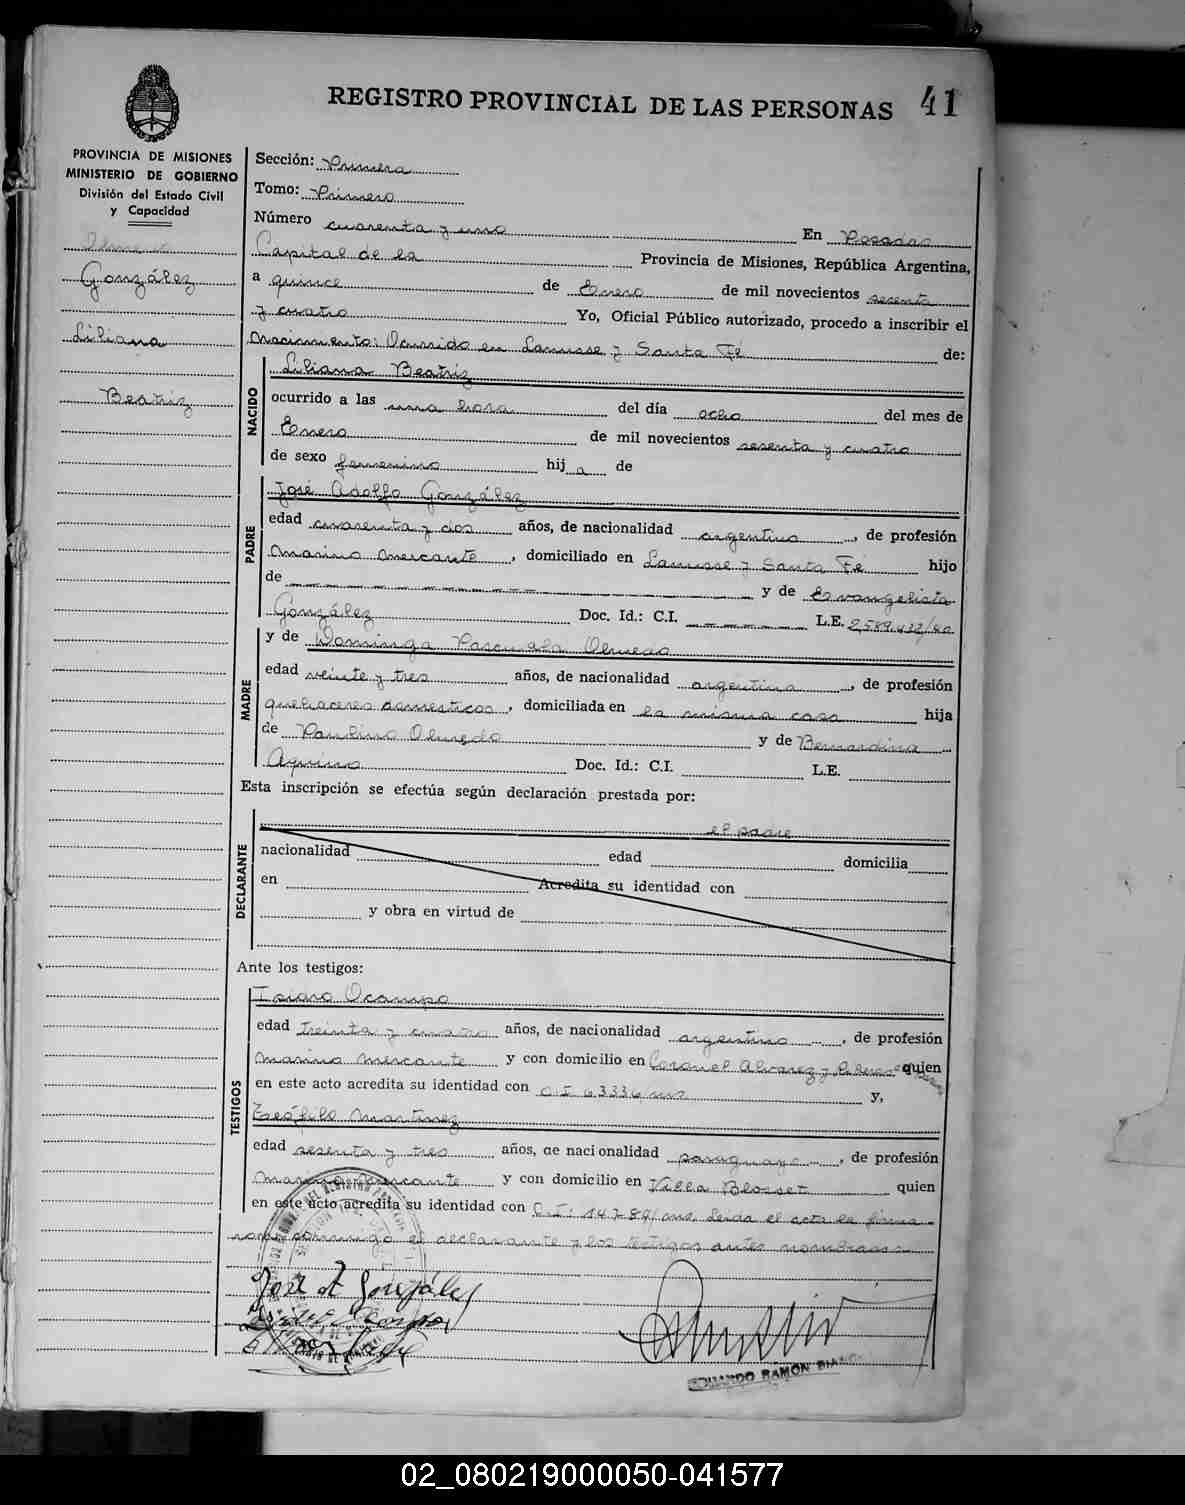 REGISTRO PROVINCIAL DE LAS PERSONAS 41
PROVINCIA DE MISIONES
MINISTERIO DE GOBIERNO
División del Estado Civil
y Capacidad
González
Liliana
Beatriz
Sección: Primera
Tomo: Primero
Número cuarenta y uno En Posadas
Capital de la Provincia de Misiones, República Argentina,
a quince de Enero de mil novecientos sesenta
y cuatro Yo, Oficial Público autorizado, procedo a inscribir el
Nacimiento: Ocurrido en Lanusse y Santa Fé de:
NACIDO
Liliana Beatriz
ocurrido a las una hora del día ocho del mes de
Enero de mil novecientos sesenta y cuatro
de sexo femenino hij a de
PADRE
José Adolfo González
edad cuarenta y dos años, de nacionalidad argentino, de profesión
Marino mercante, domiciliado en Lanusse y Santa Fé hijo
de y de Evangelista
González Doc. Id.: C.I. L.E. 2.589.432/40
MADRE
y de Dominga Pascuala Olmedo
edad veinte y tres años, de nacionalidad argentina, de profesión
quehaceres domesticos, domiciliada en la misma casa hija
de Paulino Olmedo y de Bernardina
Aquino Doc. Id.: C.I. L.E.
Esta inscripción se efectúa según declaración prestada por:
DECLARANTE
el padre
nacionalidad edad domicilia
en Acredita su identidad con
y obra en virtud de
Ante los testigos:
TESTIGOS
Isidro Ocampo
edad treinta y cuatro años, de nacionalidad argentino, de profesión
Marino mercante y con domicilio en Coronel Alvarez y quien
en este acto acredita su identidad con C.I. 63336/ms y,
Teófilo Martinez
edad sesenta y tres años, de nacionalidad paraguayo, de profesión
Marino mercante y con domicilio en Villa Blosset quien
en este acto acredita su identidad con C.I: 14784/ms. Leida el acta la firma
conmigo el declarante y los testigos antes nombrados
José A González
EDUARDO RAMÓN
02_080219000050-041577